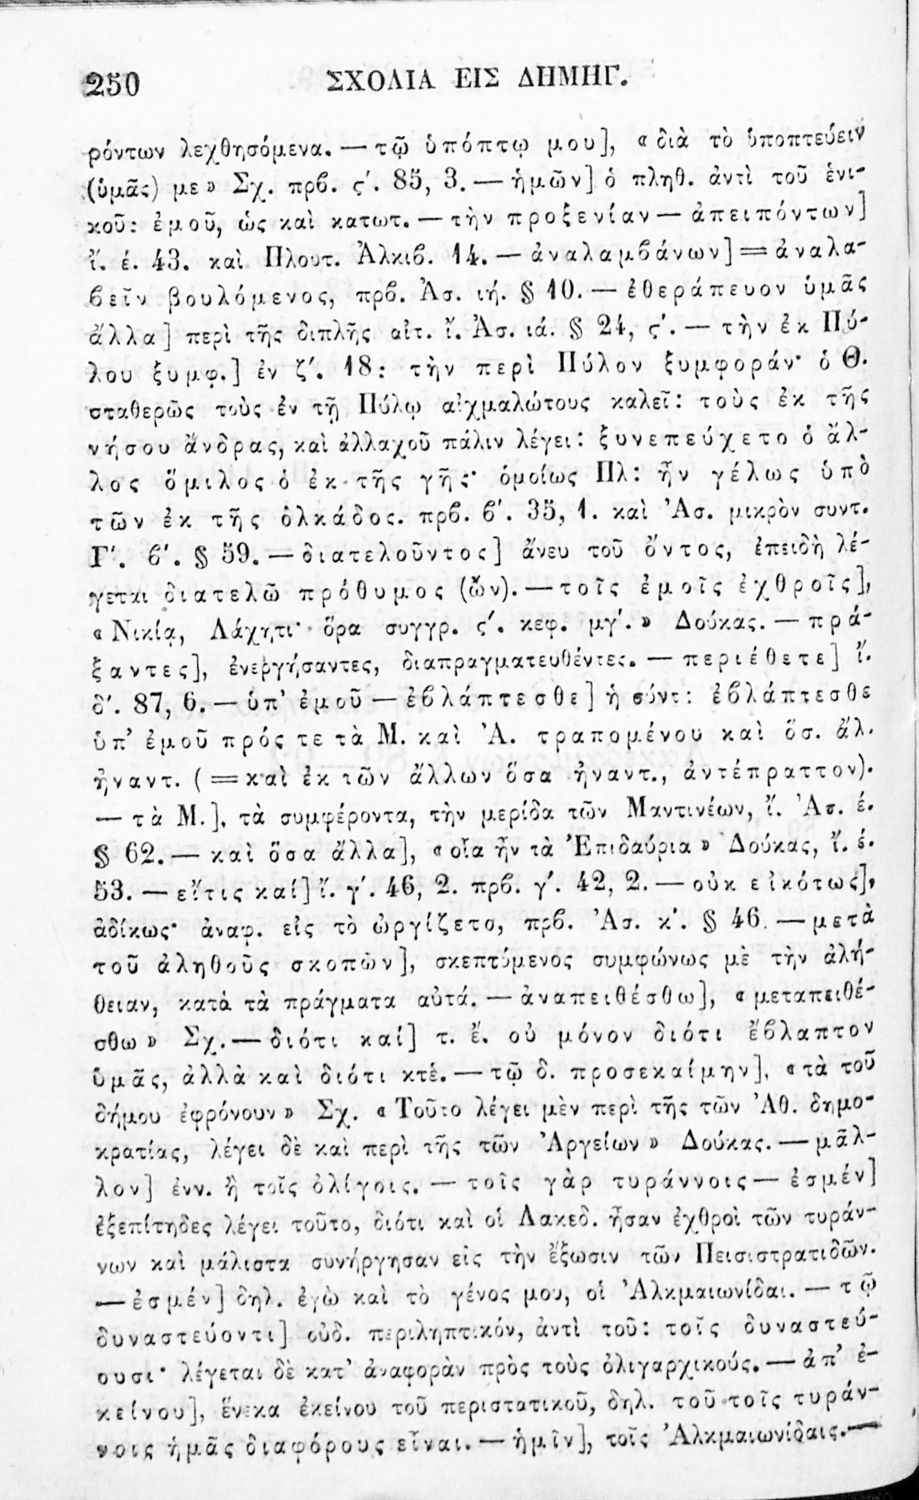 250 ΣΧΟΛΙΑ ΕΙΣ ΔΗΜΗΓ.
ρόντων λεχθησόμενα. — τῷ ὑπόπτῳ μου], « διὰ τὸ ὑποπτεύειν
(ὑμᾶς) με » Σχ. πρβ. ς΄. 85, 3. — ἡμῶν] ὁ πληθ. ἀντὶ τοῦ ἑνι-
κοῦ: ἐμοῦ, ὡς καὶ κατωτ. — τὴν προξενίαν — ἀπειπόντων]
ἴ. έ. 43. καὶ Πλουτ. Ἀλκιβ. 14. — ἀναλαμβάνων] = ἀναλα-
βεῖν βουλόμενος, πρβ. Ἀσ. ιή. § 10. — ἐθεράπευον ὑμᾶς
ἄλλα] περὶ τῆς διπλῆς αἰτ. ἴ. Ἀσ. ιά. § 24, ς΄. — τὴν ἐκ Πύ-
λου ξυμφ.] ἐν ζ΄. 18: τὴν περὶ Πύλον ξυμφοράν· ὁ Θ.
σταθερῶς τοὺς ἐν τῇ Πύλῳ αἰχμαλώτους καλεῖ: τοὺς ἐκ τῆς
νήσου ἄνδρας, καὶ ἀλλαχοῦ πάλιν λέγει: ξυνεπεύχετο ὁ ἄλ-
λος ὅμιλος ὁ ἐκ τῆς γῆς· ὁμοίως Πλ: ἦν γέλως ὑπὸ
τῶν ἐκ τῆς ὁλκάδος. πρβ. β΄. 35, 1. καὶ Ἀσ. μικρὸν συντ.
Γ΄. β΄. § 59. — διατελοῦντος] ἄνευ τοῦ ὄντος, ἐπειδὴ λέ-
γεται διατελῶ πρόθυμος (ὤν). — τοῖς ἐμοῖς ἐχθροῖς],
« Νικίᾳ, Λάχητι· ὅρα συγγρ. ς΄. κεφ. μγ΄. » Δούκας. — πρά-
ξαντες], ἐνεργήσαντες, διαπραγματευθέντες. — περιέθετε] ἴ.
δ΄. 87, 6. — ὑπ' ἐμοῦ — ἐβλάπτεσθε] ἡ σύντ: ἐβλάπτεσθε
ὑπ' ἐμοῦ πρός τε τὰ Μ. καὶ Ἀ. τραπομένου καὶ ὅσ. ἄλ.
ἠναντ. ( = καὶ ἐκ τῶν ἄλλων ὅσα ἠναντ., ἀντέπραττον).
— τὰ Μ.], τὰ συμφέροντα, τὴν μερίδα τῶν Μαντινέων, ἴ. Ἀσ. έ.
§ 62. — καὶ ὅσα ἄλλα], « οἷα ἦν τὰ Ἐπιδαύρια » Δούκας, ἴ. έ.
53. — εἴτις καί] ἴ. γ΄. 46, 2. πρβ. γ΄. 42, 2. — οὐκ εἰκότως],
ἀδίκως· ἀναφ. εἰς τὸ ὠργίζετο, πρβ. Ἀσ. κ΄. § 46. — μετὰ
τοῦ ἀληθοῦς σκοπῶν], σκεπτόμενος συμφώνως μὲ τὴν ἀλή-
θειαν, κατὰ τὰ πράγματα αὐτά. — ἀναπειθέσθω], « μεταπειθέ-
σθω » Σχ. — διότι καί] τ. ἔ. οὐ μόνον διότι ἔβλαπτον
ὑμᾶς, ἀλλὰ καὶ διότι κτέ. — τῷ δ. προσεκαίμην], « τὰ τοῦ
δήμου ἐφρόνουν » Σχ. « Τοῦτο λέγει μὲν περὶ τῆς τῶν Ἀθ. δημο-
κρατίας, λέγει δὲ καὶ περὶ τῆς τῶν Ἀργείων » Δούκας. — μᾶλ-
λον] ἐνν. ἢ τοῖς ὀλίγοις. — τοῖς γὰρ τυράννοις — ἐσμέν]
ἐξεπίτηδες λέγει τοῦτο, διότι καὶ οἱ Λακεδ. ἦσαν ἐχθροὶ τῶν τυράν-
νων καὶ μάλιστα συνήργησαν εἰς τὴν ἔξωσιν τῶν Πεισιστρατιδῶν.
— ἐσμέν] δηλ. ἐγὼ καὶ τὸ γένος μου, οἱ Ἀλκμαιωνίδαι. — τῷ
δυναστεύοντι] οὐδ. περιληπτικόν, ἀντὶ τοῦ: τοῖς δυναστεύ-
ουσι· λέγεται δὲ κατ' ἀναφορὰν πρὸς τοὺς ὀλιγαρχικούς. — ἀπ' ἐ-
κείνου], ἕνεκα ἐκείνου τοῦ περιστατικοῦ, δηλ. τοῦ τοῖς τυράν-
νοις ἡμᾶς διαφόρους εἶναι. — ἡμῖν], τοῖς Ἀλκμαιωνίδαις. —